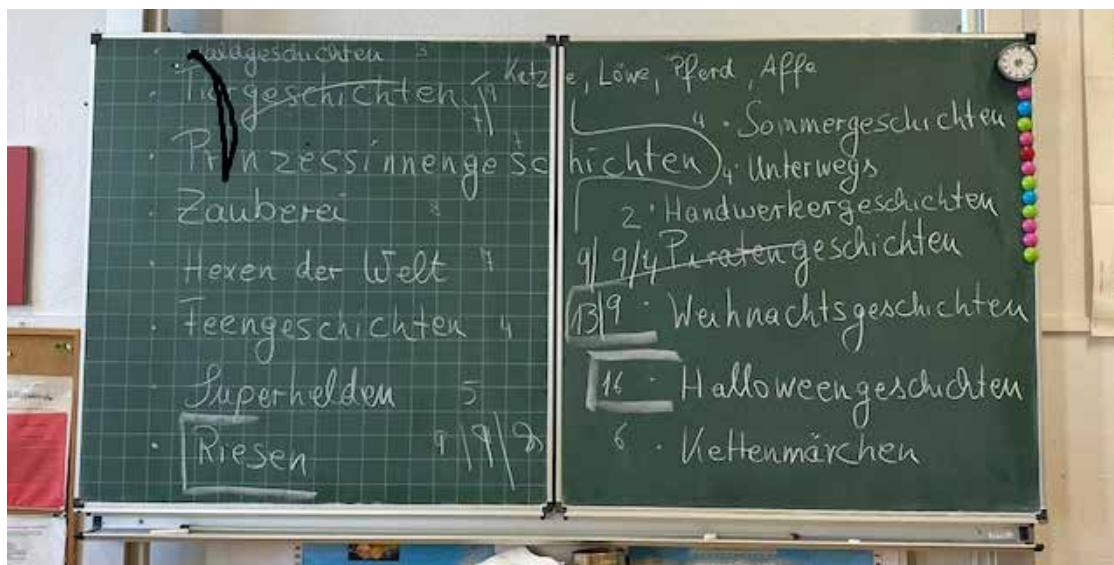 Waldgeschichten 3
Tiergeschichten 7/9 Katze, Löwe, Pferd, Affe
7
Prinzessinnengeschichten 7
Zauberei
Hexen der Welt 7
Feengeschichten 4
Superhelden 5
Riesen 9 | 9 | 8
4 · Sommergeschichten
4 · Unterwegs
2 · Handwerkergeschichten
9/ 9/4 Piratengeschichten
13/9 · Weihnachtsgeschichten
16 · Halloweengeschichten
6 · Kettenmärchen